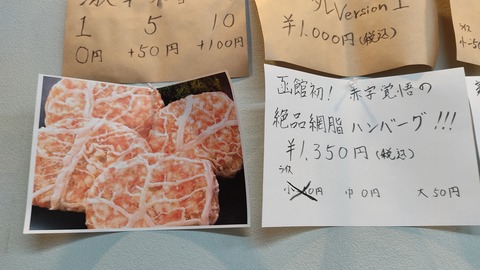 1 5 10
0円 +50円 +100円
Version 1
¥1,000円(税込)
函館初! 赤字覚悟の
絶品網脂ハンバーグ!!!
¥1,350円(税込)
ライス
中0円 大50円